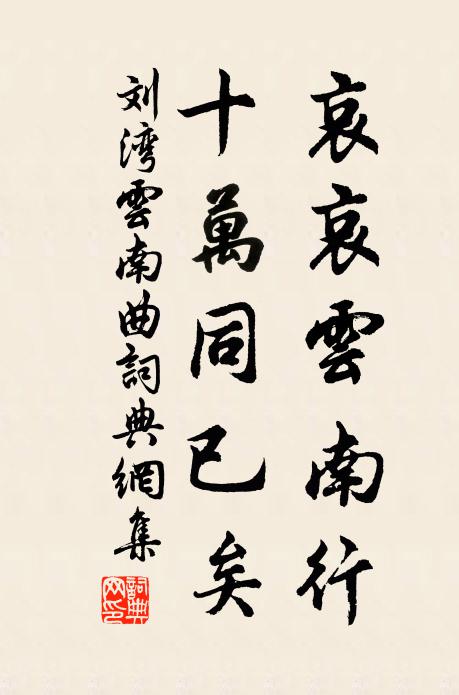 哀哀雲南行
十萬同已矣
刘湾雲南曲詞典網集
詞典網印